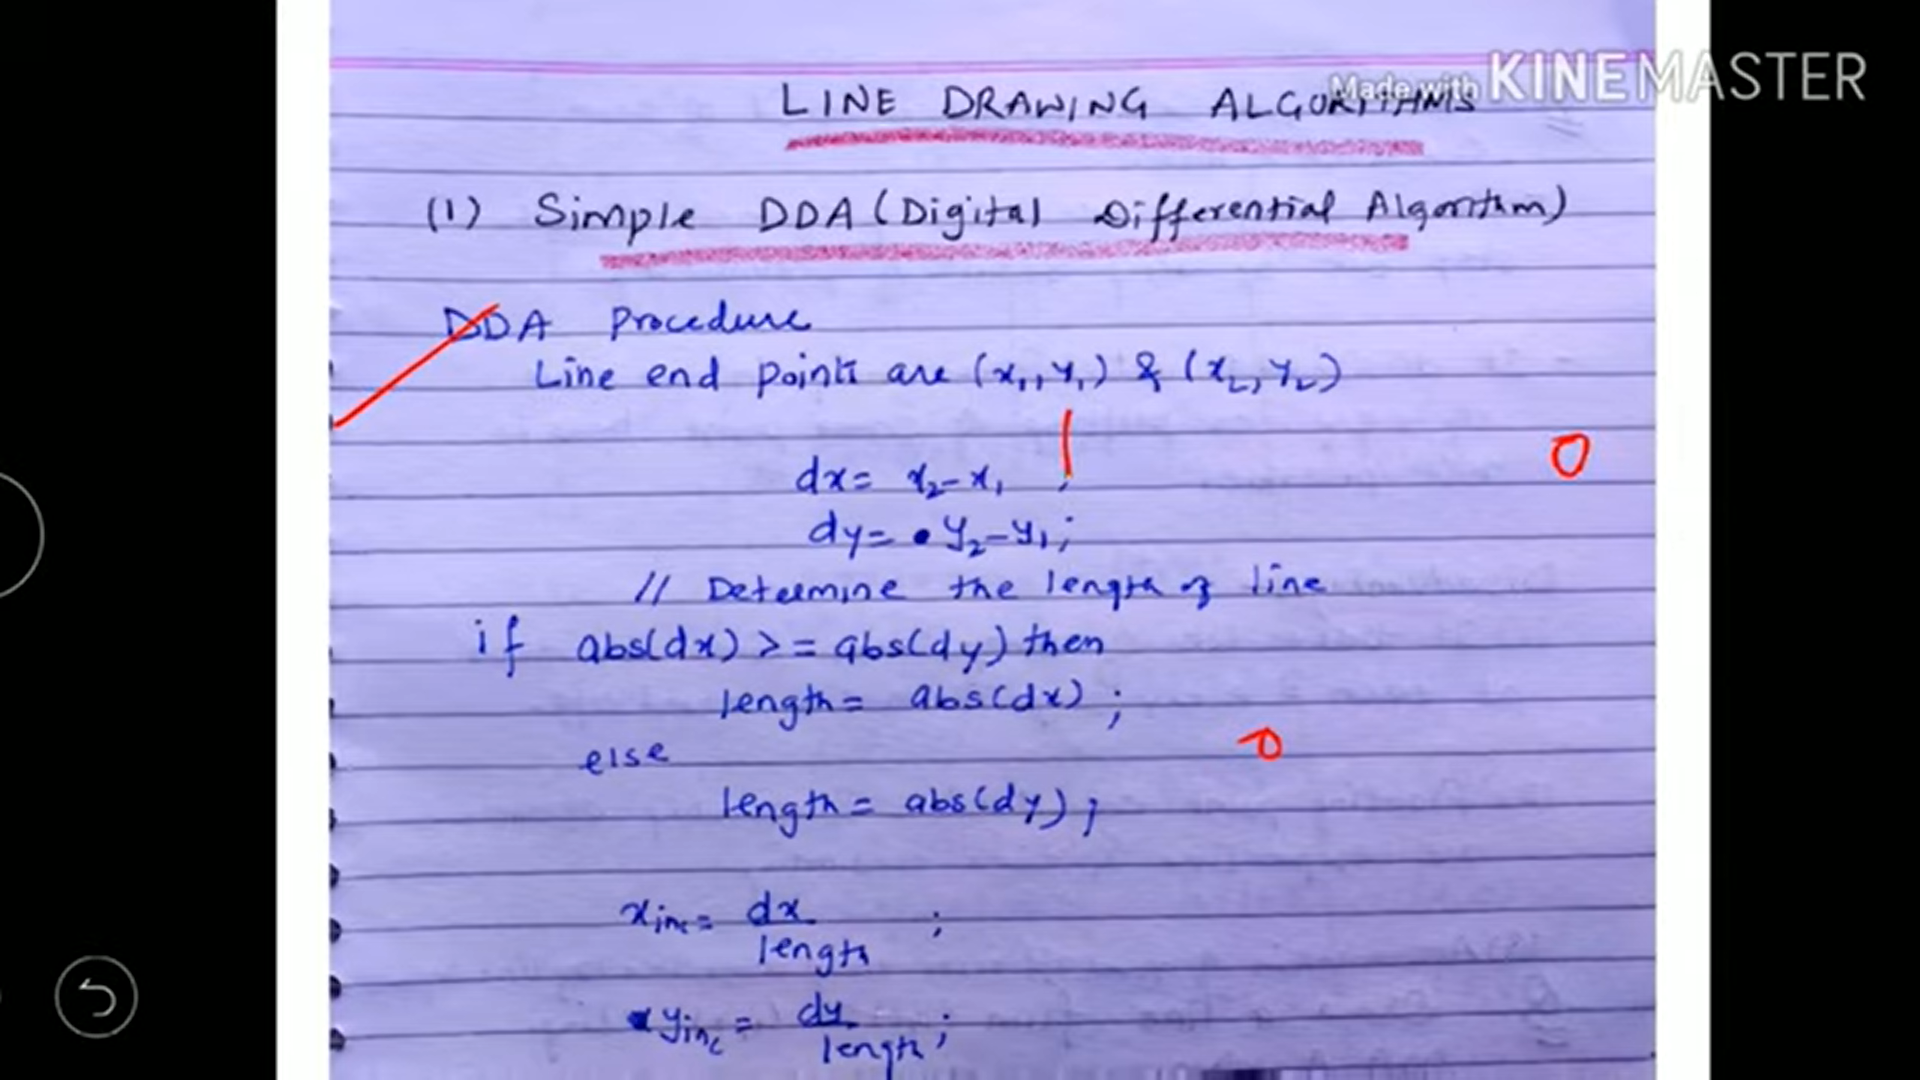 Made with KINEMASTER
LINE DRAWING ALGORITHMS
(1) Simple DDA (Digital Differential Algorithm)
DDA Procedure
Line end points are (x₁, y₁) & (x₂, y₂)
dx = x₂ - x₁ ;
dy = y₂ - y₁ ;
// Determine the length of line
if abs(dx) >= abs(dy) then
length = abs(dx) ;
else
length = abs(dy) ;
xinc = dx/length ;
yinc = dy/length ;